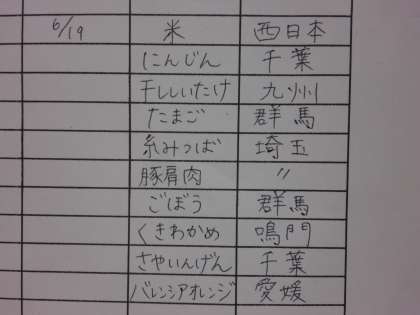 6/19 米 西日本
にんじん 千葉
干ししいたけ 九州
たまご 群馬
糸みつば 埼玉
豚肩肉 〃
ごぼう 群馬
くきわかめ 鳴門
さやいんげん 千葉
バレンシアオレンジ 愛媛